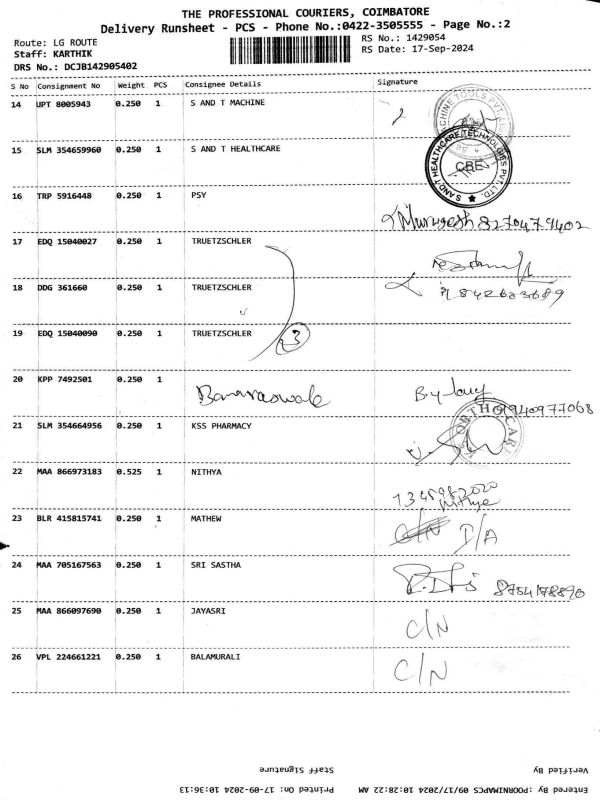 THE PROFESSIONAL COURIERS, COIMBATORE
Delivery Runsheet - PCS - Phone No.:0422-3505555 - Page No.:2
Route: LG ROUTE
Staff: KARTHIK
DRS No.: DCJB142905402
RS No.: 1429054
RS Date: 17-Sep-2024
S No Consignment No Weight PCS Consignee Details Signature
14 UPT 8005943 0.250 1 S AND T MACHINE
15 SLM 354659960 0.250 1 S AND T HEALTHCARE
S AND T HEALTHCARE TECHNOLOGIES PVT. LTD.
CBE
16 TRP 5916448 0.250 1 PSY
Murugesh 8270479402
17 EDQ 15040027 0.250 1 TRUETZSCHLER
18 DDG 361660 0.250 1 TRUETZSCHLER
19 EDQ 15040090 0.250 1 TRUETZSCHLER
3
20 KPP 7492501 0.250 1
21 SLM 354664956 0.250 1 KSS PHARMACY
22 MAA 866973183 0.525 1 NITHYA
Nithya
23 BLR 415815741 0.250 1 MATHEW
I/A
24 MAA 705167563 0.250 1 SRI SASTHA
8754178890
25 MAA 866097690 0.250 1 JAYASRI
C/N
26 VPL 224661221 0.250 1 BALAMURALI
C/N
Verified By
Staff Signature
Entered By :POORNIMAPCS 09/17/2024 10:28:22 AM
Printed On: 17-09-2024 10:36:13